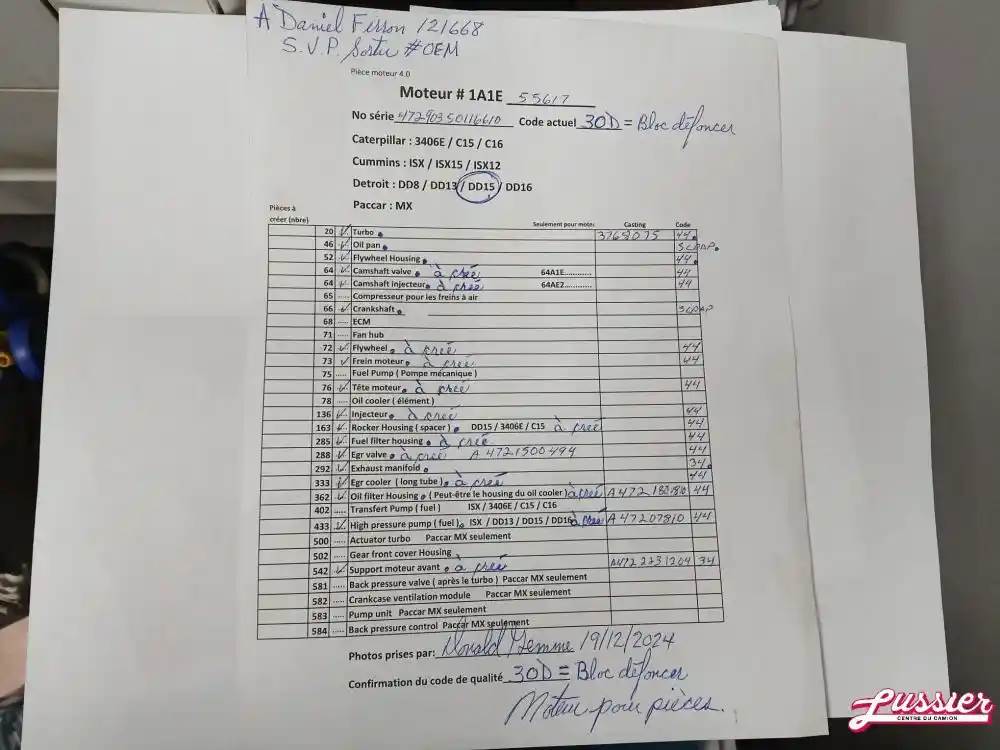 A Daniel Ferron 121668
S.V.P. Sortir #OEM
Pièce moteur 4.0
Moteur # 1A1E 55617
No série 47290350116610 Code actuel 30D = Bloc défoncer
Caterpillar : 3406E / C15 / C16
Cummins : ISX / ISX15 / ISX12
Detroit : DD8 / DD13 / DD15 / DD16
Paccar : MX
Pièces à créer (nbre) Seulement pour moteur Casting Code
20 ✓ Turbo 3768075 44
46 ✓ Oil pan SCRAP
52 ✓ Flywheel Housing 44
64 ✓ Camshaft valve à créé 64A1E............ 44
64 ✓ Camshaft injecteur à créé 64AE2............ 44
65 ..... Compresseur pour les freins à air
66 ✓ Crankshaft SCRAP
68 ..... ECM
71 ..... Fan hub
72 ✓ Flywheel à créé 44
73 ✓ Frein moteur à créé 44
75 ..... Fuel Pump ( Pompe mécanique )
76 ✓ Tête moteur à créé 44
78 ..... Oil cooler ( élément )
136 ✓ Injecteur à créé 44
163 ✓ Rocker Housing ( spacer ) DD15 / 3406E / C15 à créé 44
285 ✓ Fuel filter housing à créé 44
288 ✓ Egr valve à créé A 4721500494 44
292 ✓ Exhaust manifold 34
333 ✓ Egr cooler ( long tube ) à créé 44
362 ✓ Oil filter Housing ( Peut-être le housing du oil cooler ) à créé 44
402 ..... Transfert Pump ( fuel ) ISX / 3406E / C15 / C16
433 ✓ High pressure pump ( fuel ) ISX / DD13 / DD15 / DD16 à créé A 47207810 44
500 ..... Actuator turbo Paccar MX seulement
502 ..... Gear front cover Housing
542 ✓ Support moteur avant à créé A472 2231204 34
581 ..... Back pressure valve ( après le turbo ) Paccar MX seulement
582 ..... Crankcase ventilation module Paccar MX seulement
583 ..... Pump unit Paccar MX seulement
584 ..... Back pressure control Paccar MX seulement
Photos prises par: Donald Gemme 19/12/2024
Confirmation du code de qualité 30D = Bloc défoncer
Moteur pour pièces.
Lussier
CENTRE DU CAMION